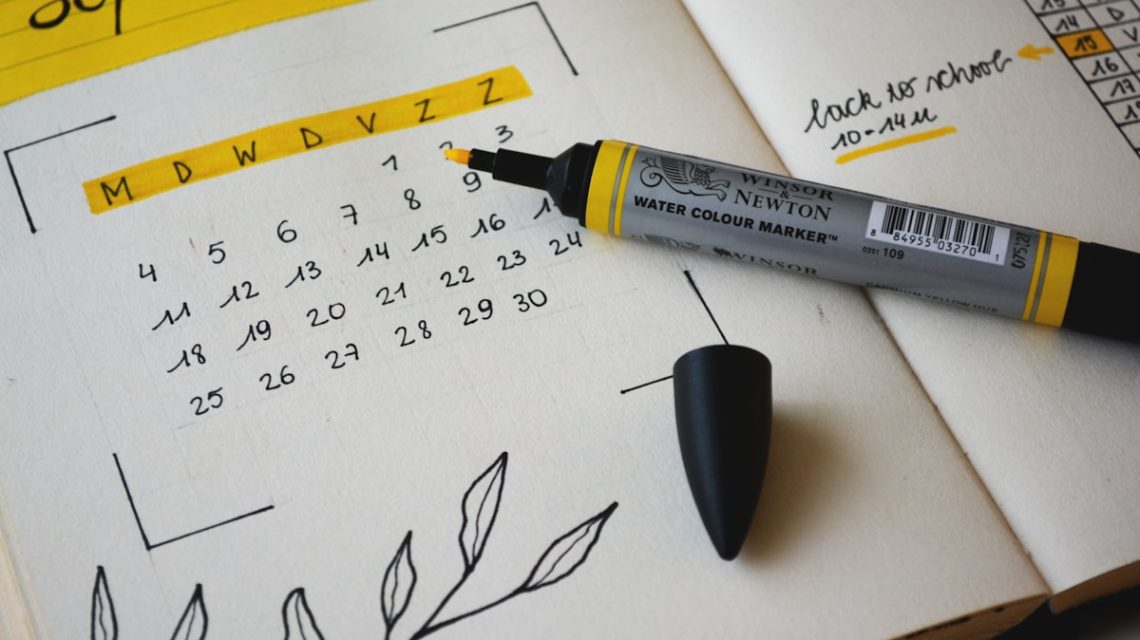 Sep
M D W D V Z Z
1 2 3
4 5 6 7 8 9
11 12 13 14 15 16
18 19 20 21 22 23 24
25 26 27 28 29 30
back to school
10-14u
14 D
15 V
16
17
WINSOR
&
NEWTON
WATER COLOUR MARKER™
8 84955 03270 1
0201 109
WINSOR
CADMIUM YELLOW HUE